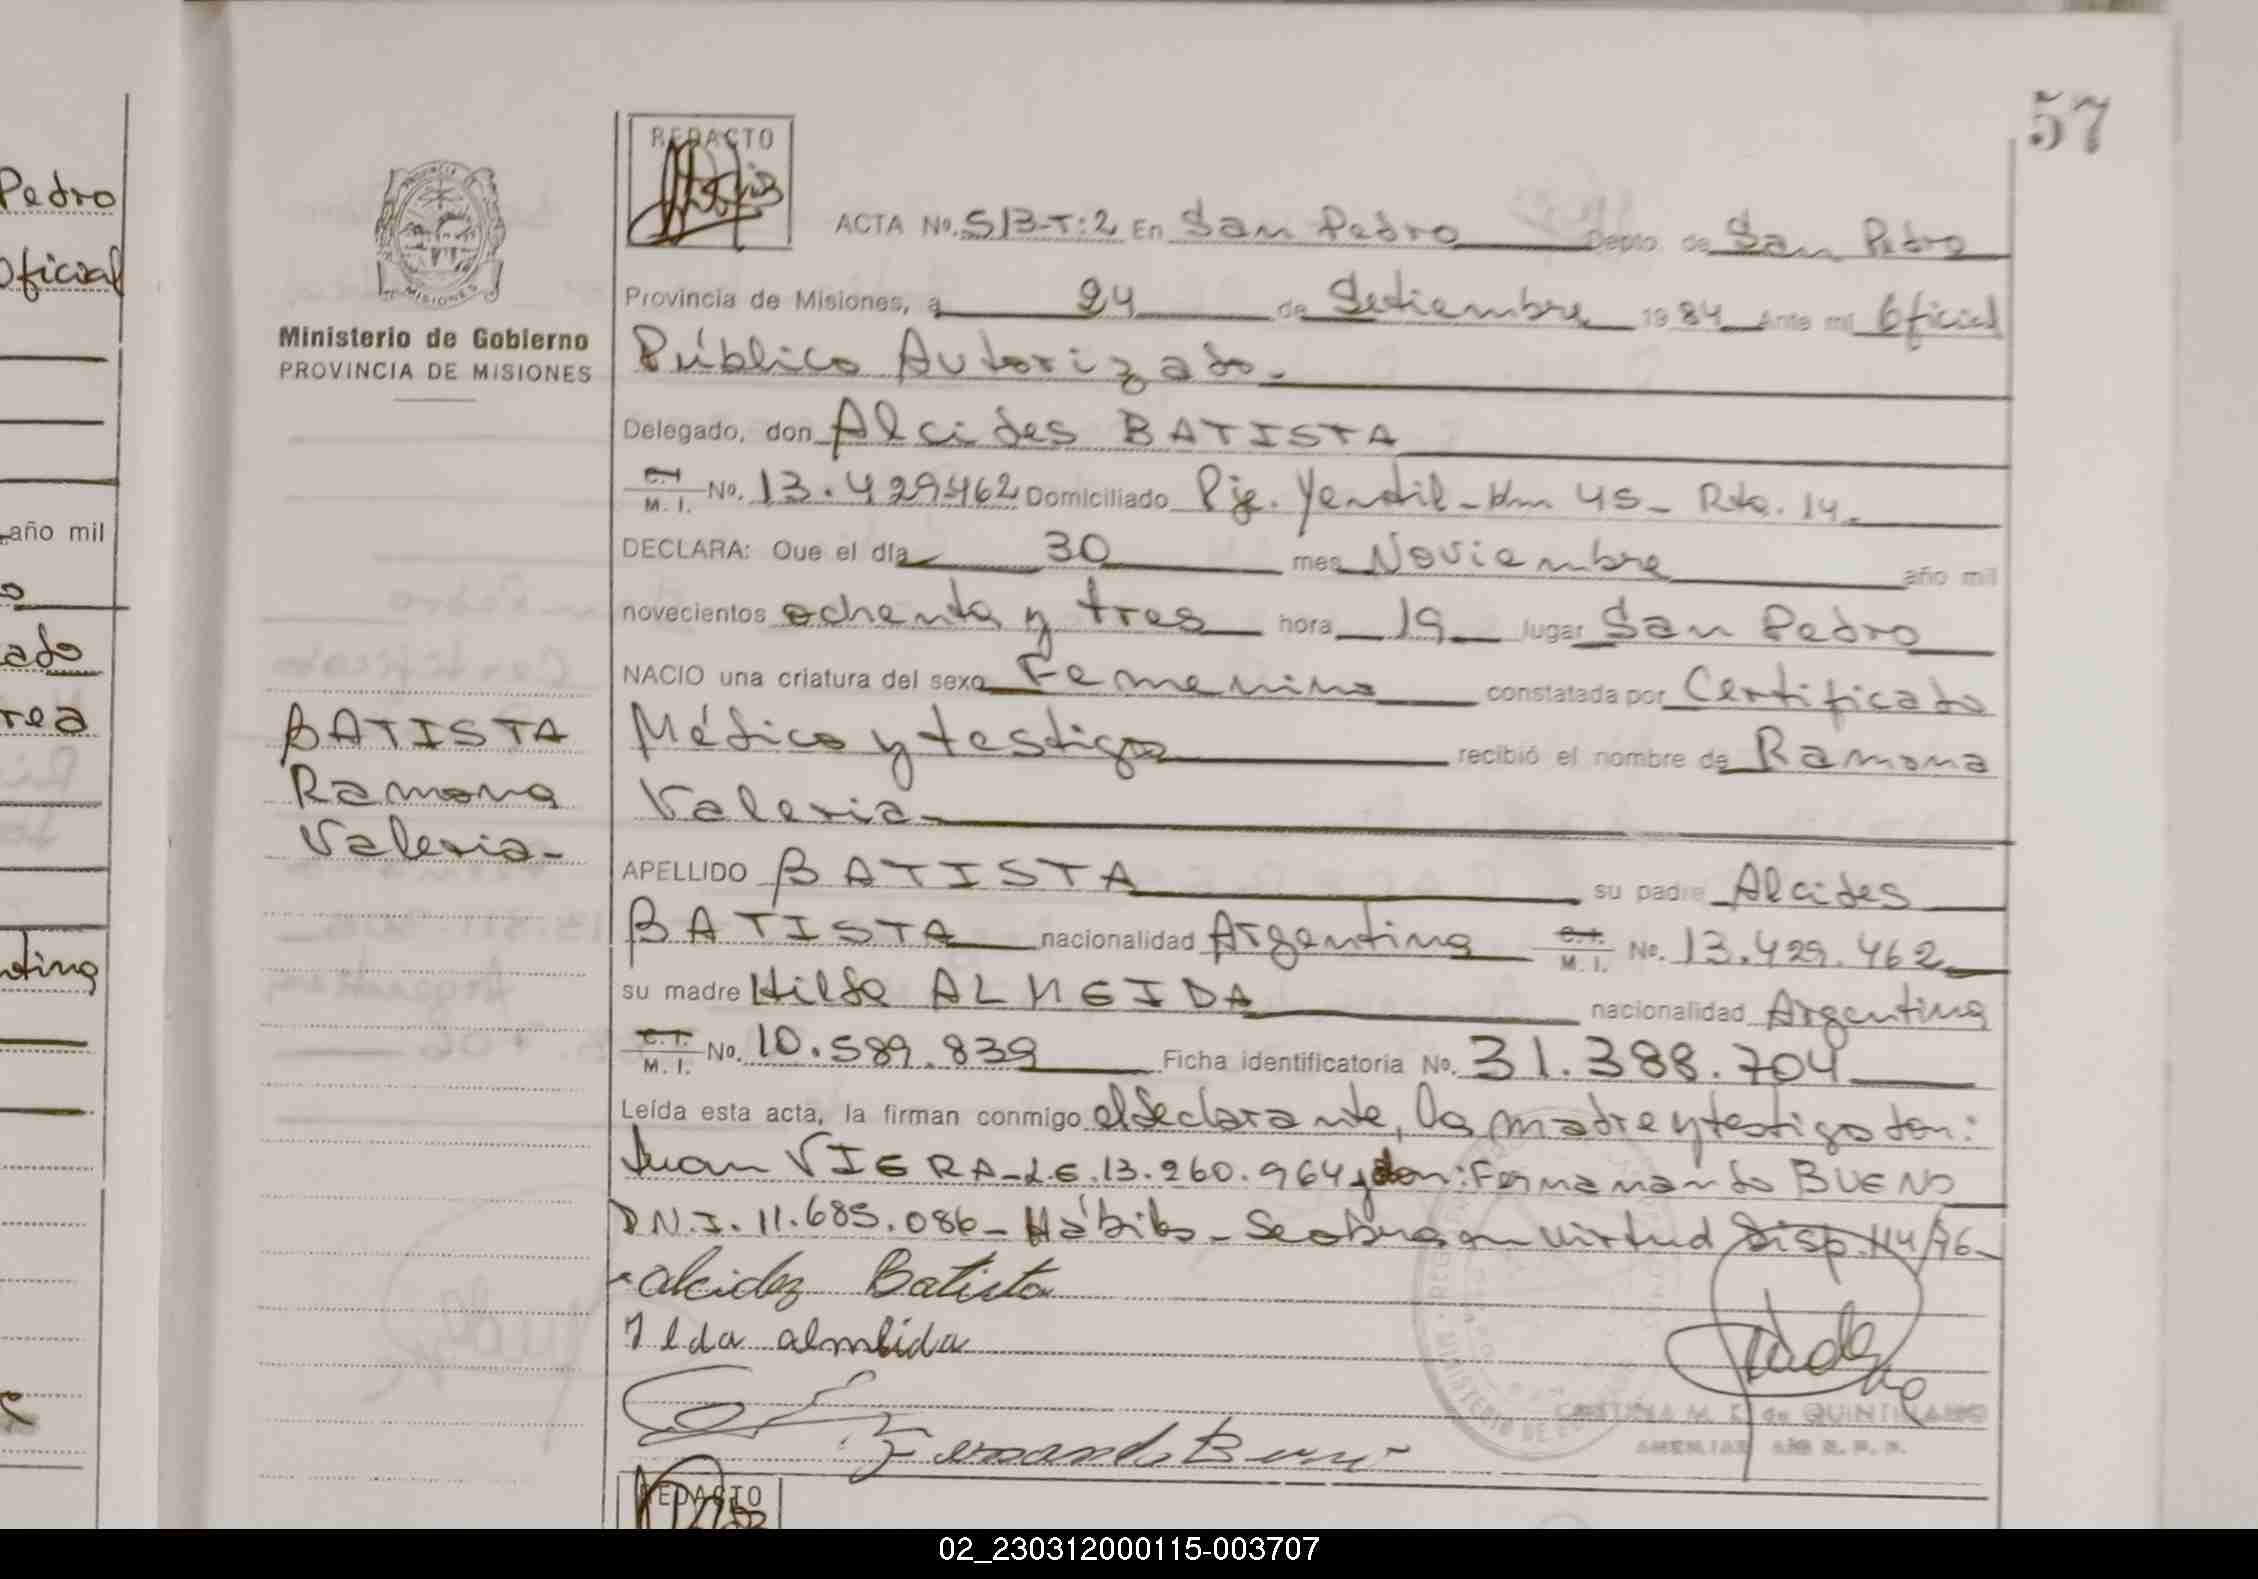 57
Pedro
Oficial
año mil
o
ado
rea
ntina
PROVINCIA DE MISIONES
Ministerio de Gobierno
PROVINCIA DE MISIONES
BATISTA
Ramona
Valeria-
REDACTO
ACTA No. 513-T:2 En San Pedro Depto. de San Pedro
Provincia de Misiones, a 24 de Setiembre 1984 Ante mi Oficial
Público Autorizado.
Delegado, don Alcides BATISTA
C.I. M. I. No. 13.429462 Domiciliado Pje. Yendil-Km 45- Rta. 14.
DECLARA: Que el día 30 mes Noviembre año mil
novecientos ochenta y tres hora 19 lugar San Pedro
NACIO una criatura del sexo Femenino constatada por Certificado
Médico y testigo recibió el nombre de Ramona
Valeria-
APELLIDO BATISTA su padre Alcides
BATISTA nacionalidad Argentina C.I. M. I. No. 13.429.462
su madre Hilda ALMEIDA nacionalidad Argentina
C.I. M. I. No. 10.589.839 Ficha identificatoria No. 31.388.704
Leída esta acta, la firman conmigo el declarante, la madre y testigo don:
Juan VIERA-L.E.13.260.964 y don: Fernanando BUENO
D.N.I. 11.685.086- Hábiles- Se obra en virtud Disp. 114/76-
alcidez Batista
Ilda almeida
Fernando Bueno
CRISTINA M. K. de QUINTILIANO
REDACTO
02_230312000115-003707